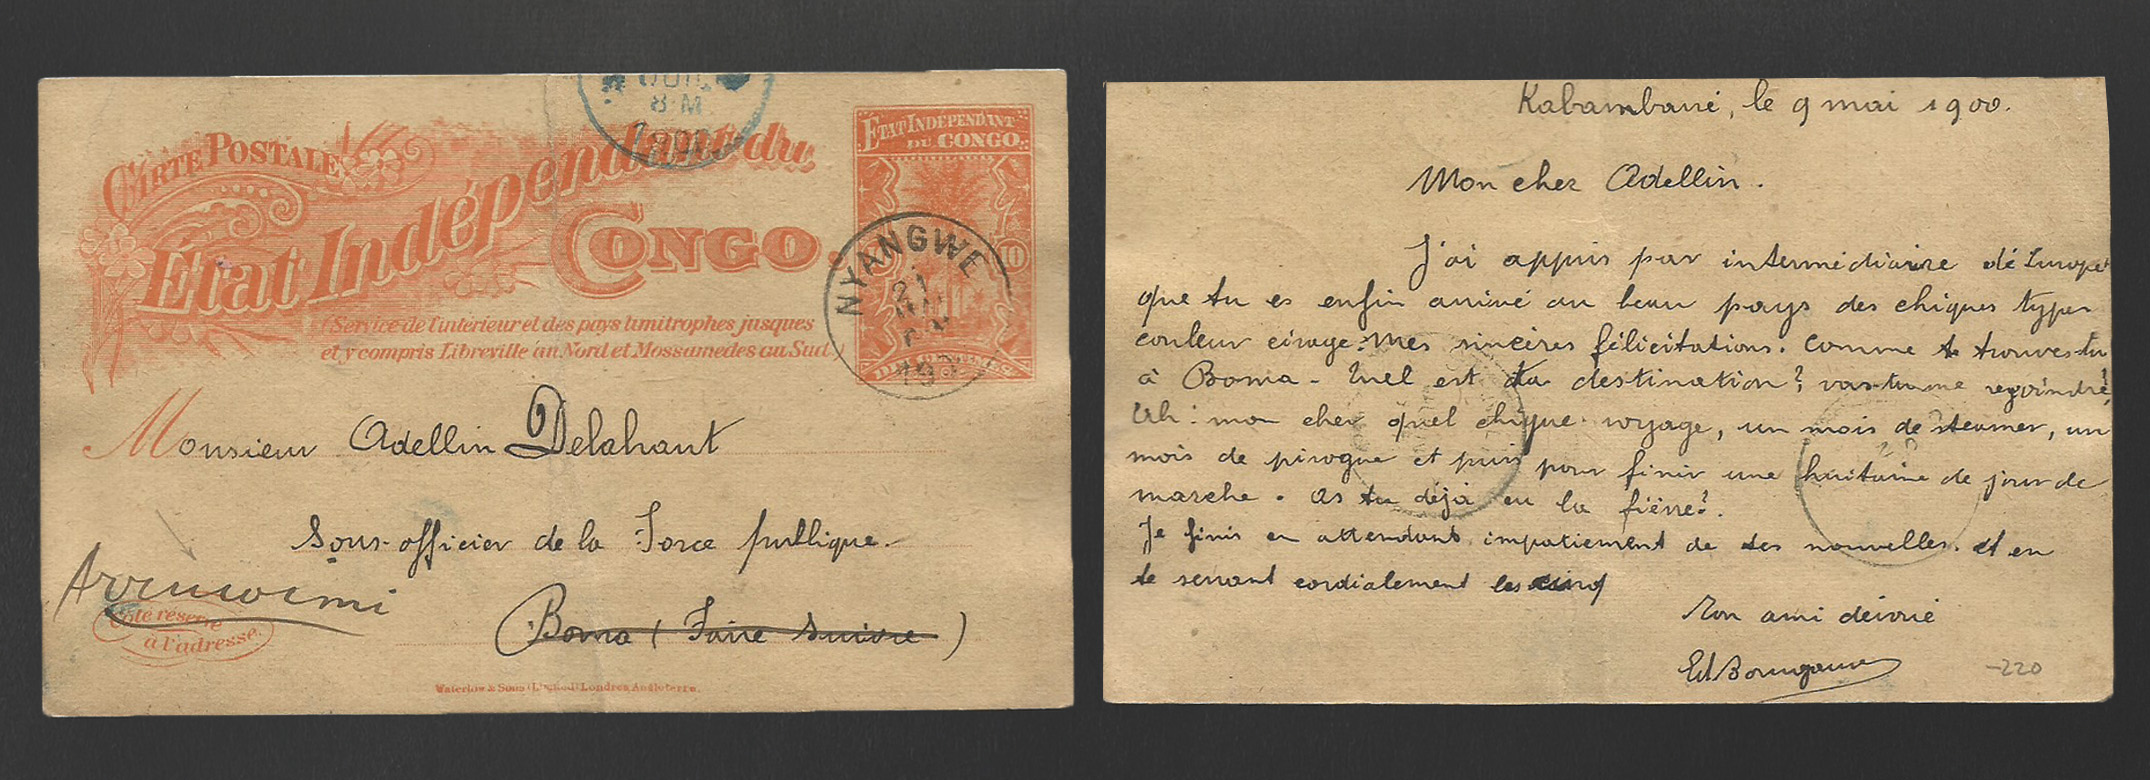 CARTE POSTALE
État Indépendant du
CONGO.
(Service de l'intérieur et des pays limitrophes jusques
et y compris Libreville au Nord et Mossamedes au Sud)
8 M
ETAT INDEPENDANT
DU CONGO.
10
NYANGWE
21
Monsieur Adellin Delahaut
Sous-officier de la Force publique.
Aruwimi
Côté réservé
à l'adresse.
Boma (Faire suivre)
Waterlow & Sons Limited, Londres, Angleterre.
Kabambaré, le 9 mai 1900.
Mon cher Adellin.
J'ai appris par intermédiaire
que tu es enfin arrivé au beau pays des chiques types
couleur cirage. Mes sincères félicitations. Comme te trouves-tu
à Boma - Quel est ta destination? vas-tu me rejoindre?
Ah: mon cher quel chique voyage, un mois de steamer, un
mois de pirogue et puis pour finir une huitaine de jour de
marche. As tu déjà eu la fièvre?
Je finis en attendant impatiement de tes nouvelles. et en
te serrant cordialement les cinq
Ton ami dévoué
-220